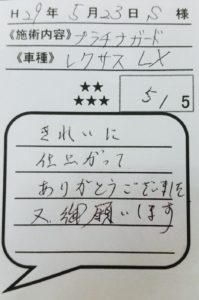 H29年5月23日 S 様
《施術内容》プラチナガード
《車種》レクサス LX
★★
★★★
5/5
きれいに
仕上がって
ありがとうございました
又御願いします